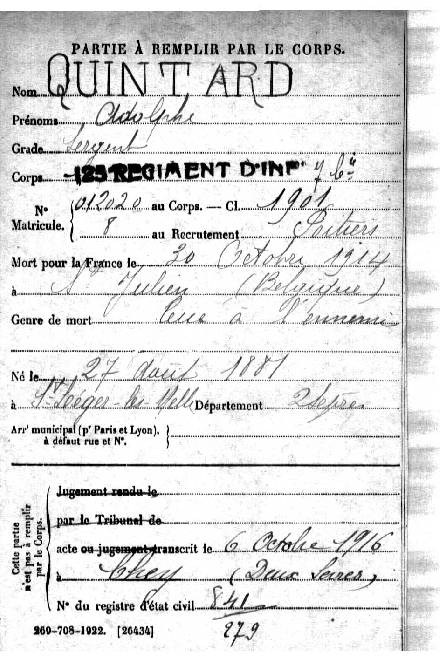 PARTIE À REMPLIR PAR LE CORPS.
Nom QUINTARD
Prénoms Adolphe
Grade Sergent
Corps 125 REGIMENT D'INF 7 Cie
N° 012020 au Corps. — Cl. 1901
Matricule. 8 au Recrutement Poitiers
Mort pour la France le 30 Octobre 1914
à St Julien (Belgique)
Genre de mort Tué à l'ennemi
Né le 27 août 1881
à St Léger-les-Melle Département 2 Sèvres
Arrt municipal (pr Paris et Lyon).
à défaut rue et N°.
Cette partie
n'est pas à remplir
par le Corps.
Jugement rendu le
par le Tribunal de
acte ou jugement transcrit le 6 Octobre 1916
à Chey (Deux Sèvres)
N° du registre d'état civil 841
279
269-708-1922. [26434]